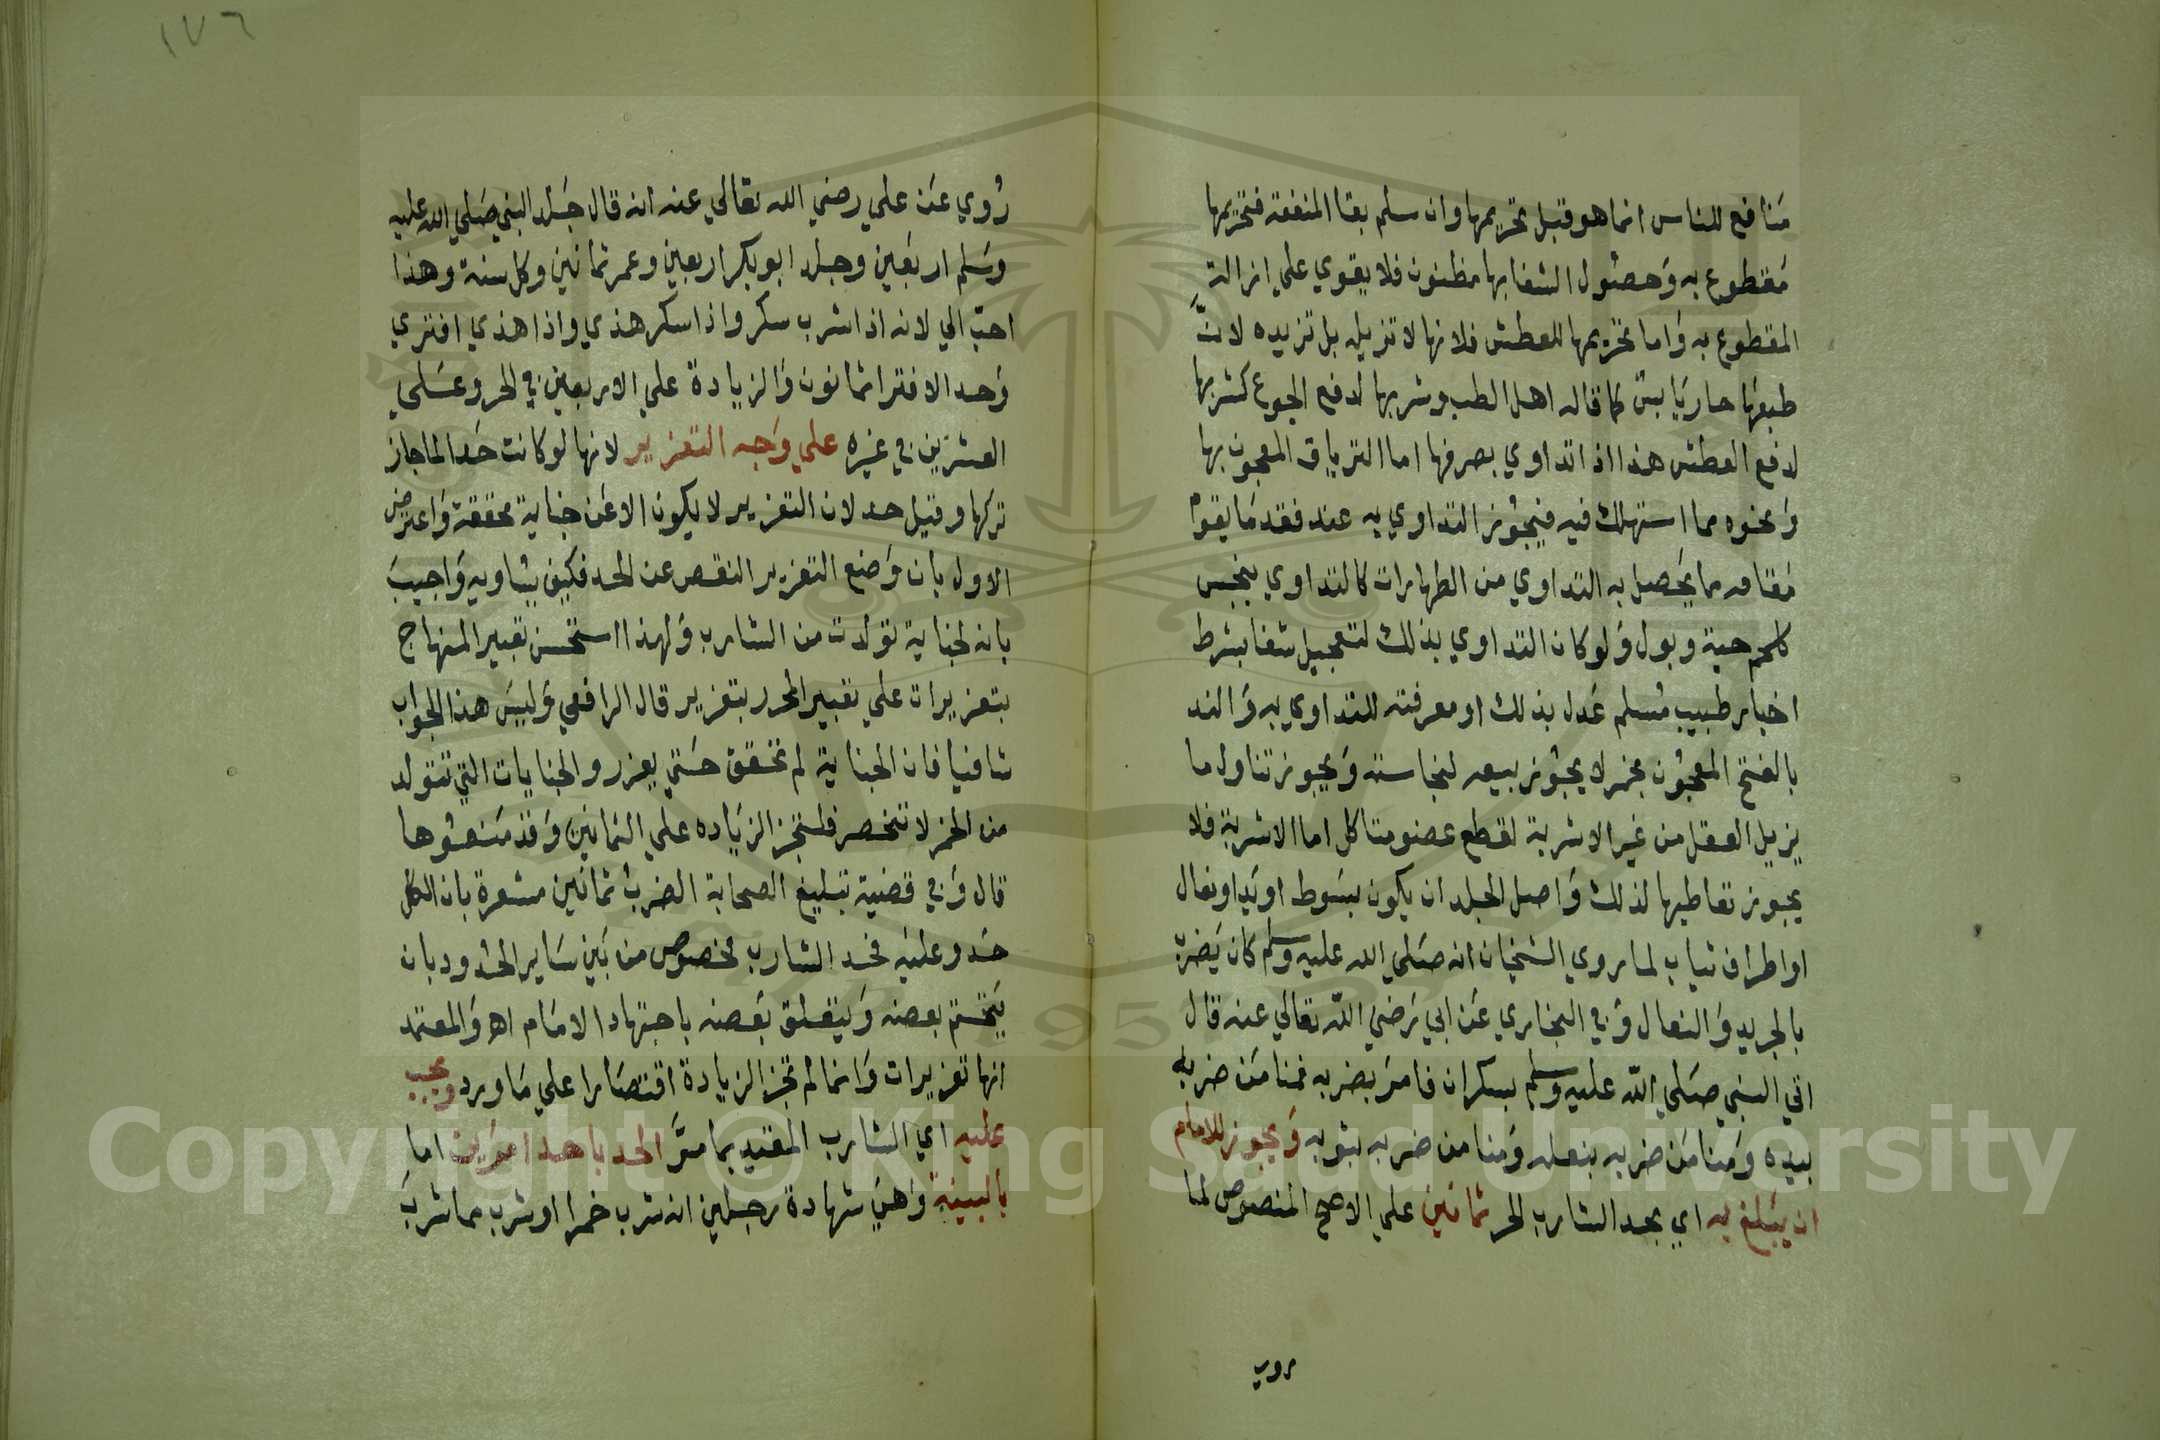 منافع للناس انما هو قبل تحريمها وان سلم بقا المنفعة فتحريمها
مقطوع به وحصول الشفا بها مظنون فلا يقوي علي ازالة
المقطوع به واما تحريمها للعطش فلانها لا تزيله بل تزيده لان
طبعها حار يابس كما قاله اهل الطب وشربها لدفع الجوع كشربها
لدفع العطش هذا اذا تداوي بصرفها اما الترياق المعجون بها
ونحوه مما استهلك فيه فيجوز التداوي به عند فقد ما يقوم
مقامه مما يحصل به التداوي من الطهارات كالتداوي بنجس
كلحم حية وبول ولو كان التداوي بذلك لتعجيل شفا بشرط
اخبار طبيب مسلم عدل بذلك او معرفته للتداوي به والند
بالفتح المعجون بخمر لا يجوز بيعه لنجاسته ويجوز تناول ما
يزيل العقل من غير الاشربة لقطع عضو متاكل اما الاشربة فلا
يجوز تعاطيها لذلك واصل الجلد ان يكون بسوط او يد او نعال
او اطراف ثياب لما روي الشيخان انه صلي الله عليه وسلم كان يضرب
بالجريد والنعال وفي البخاري عن ابي رضي الله تعالي عنه قال
اتي النبي صلي الله عليه وسلم بسكران فامر بضربه فمنا من ضربه
بيده ومنا من ضربه بنعله ومنا من ضربه بثوبه ويجوز للامام
ان يبلغ به اي بحد الشارب الحر ثمانين علي الاصح المنصوص لما
روي
١٧٦
روي عن علي رضي الله تعالي عنه انه قال جلد النبي صلي الله عليه
وسلم اربعين وجلد ابو بكر اربعين وعمر ثمانين وكل سنة وهذا
احب الي لانه اذا شرب سكر واذا سكر هذي واذا هذي افتري
وحد الافترا ثمانون والزيادة علي الاربعين في الحر وعلي
العشرين في غيره علي وجه التعزير لانها لو كانت حدا لما جاز
تركها وقيل حد لان التعزير لا يكون الا عن جناية محققة واعترض
الاول بان وضع التعزير النقص عن الحد فكيف يساويه واجيب
بانه لجناية تولدت من الشارب ولهذا استحسن تعبير المنهاج
بتعزيرات علي تعبير المحرر بتعزير قال الرافعي وليس هذا الجواب
شافيا فان الجناية لم تتحقق حتي يعزر والجنايات التي تتولد
من الخمر لا تنحصر فلتجز الزياده علي الثمانين وقد منعوها
قال وفي قضية تبليغ الصحابة الضرب ثمانين مشعرة بان الكل
حد وعليه فحد الشارب مخصوص من بين ساير الحدود بان
يتحتم بعضه ويتعلق بعضه باجتهاد الامام اهـ والمعتمد
انها تعزيرات وانما لم تجز الزيادة اقتصارا علي ما ورد ويجب
عليه اي الشارب المقيد بما مر الحد باحد امرين اما
بالبينة وهي شهادة رجلين انه شرب خمرا او شرب مما شرب
Copyright © King Saud University